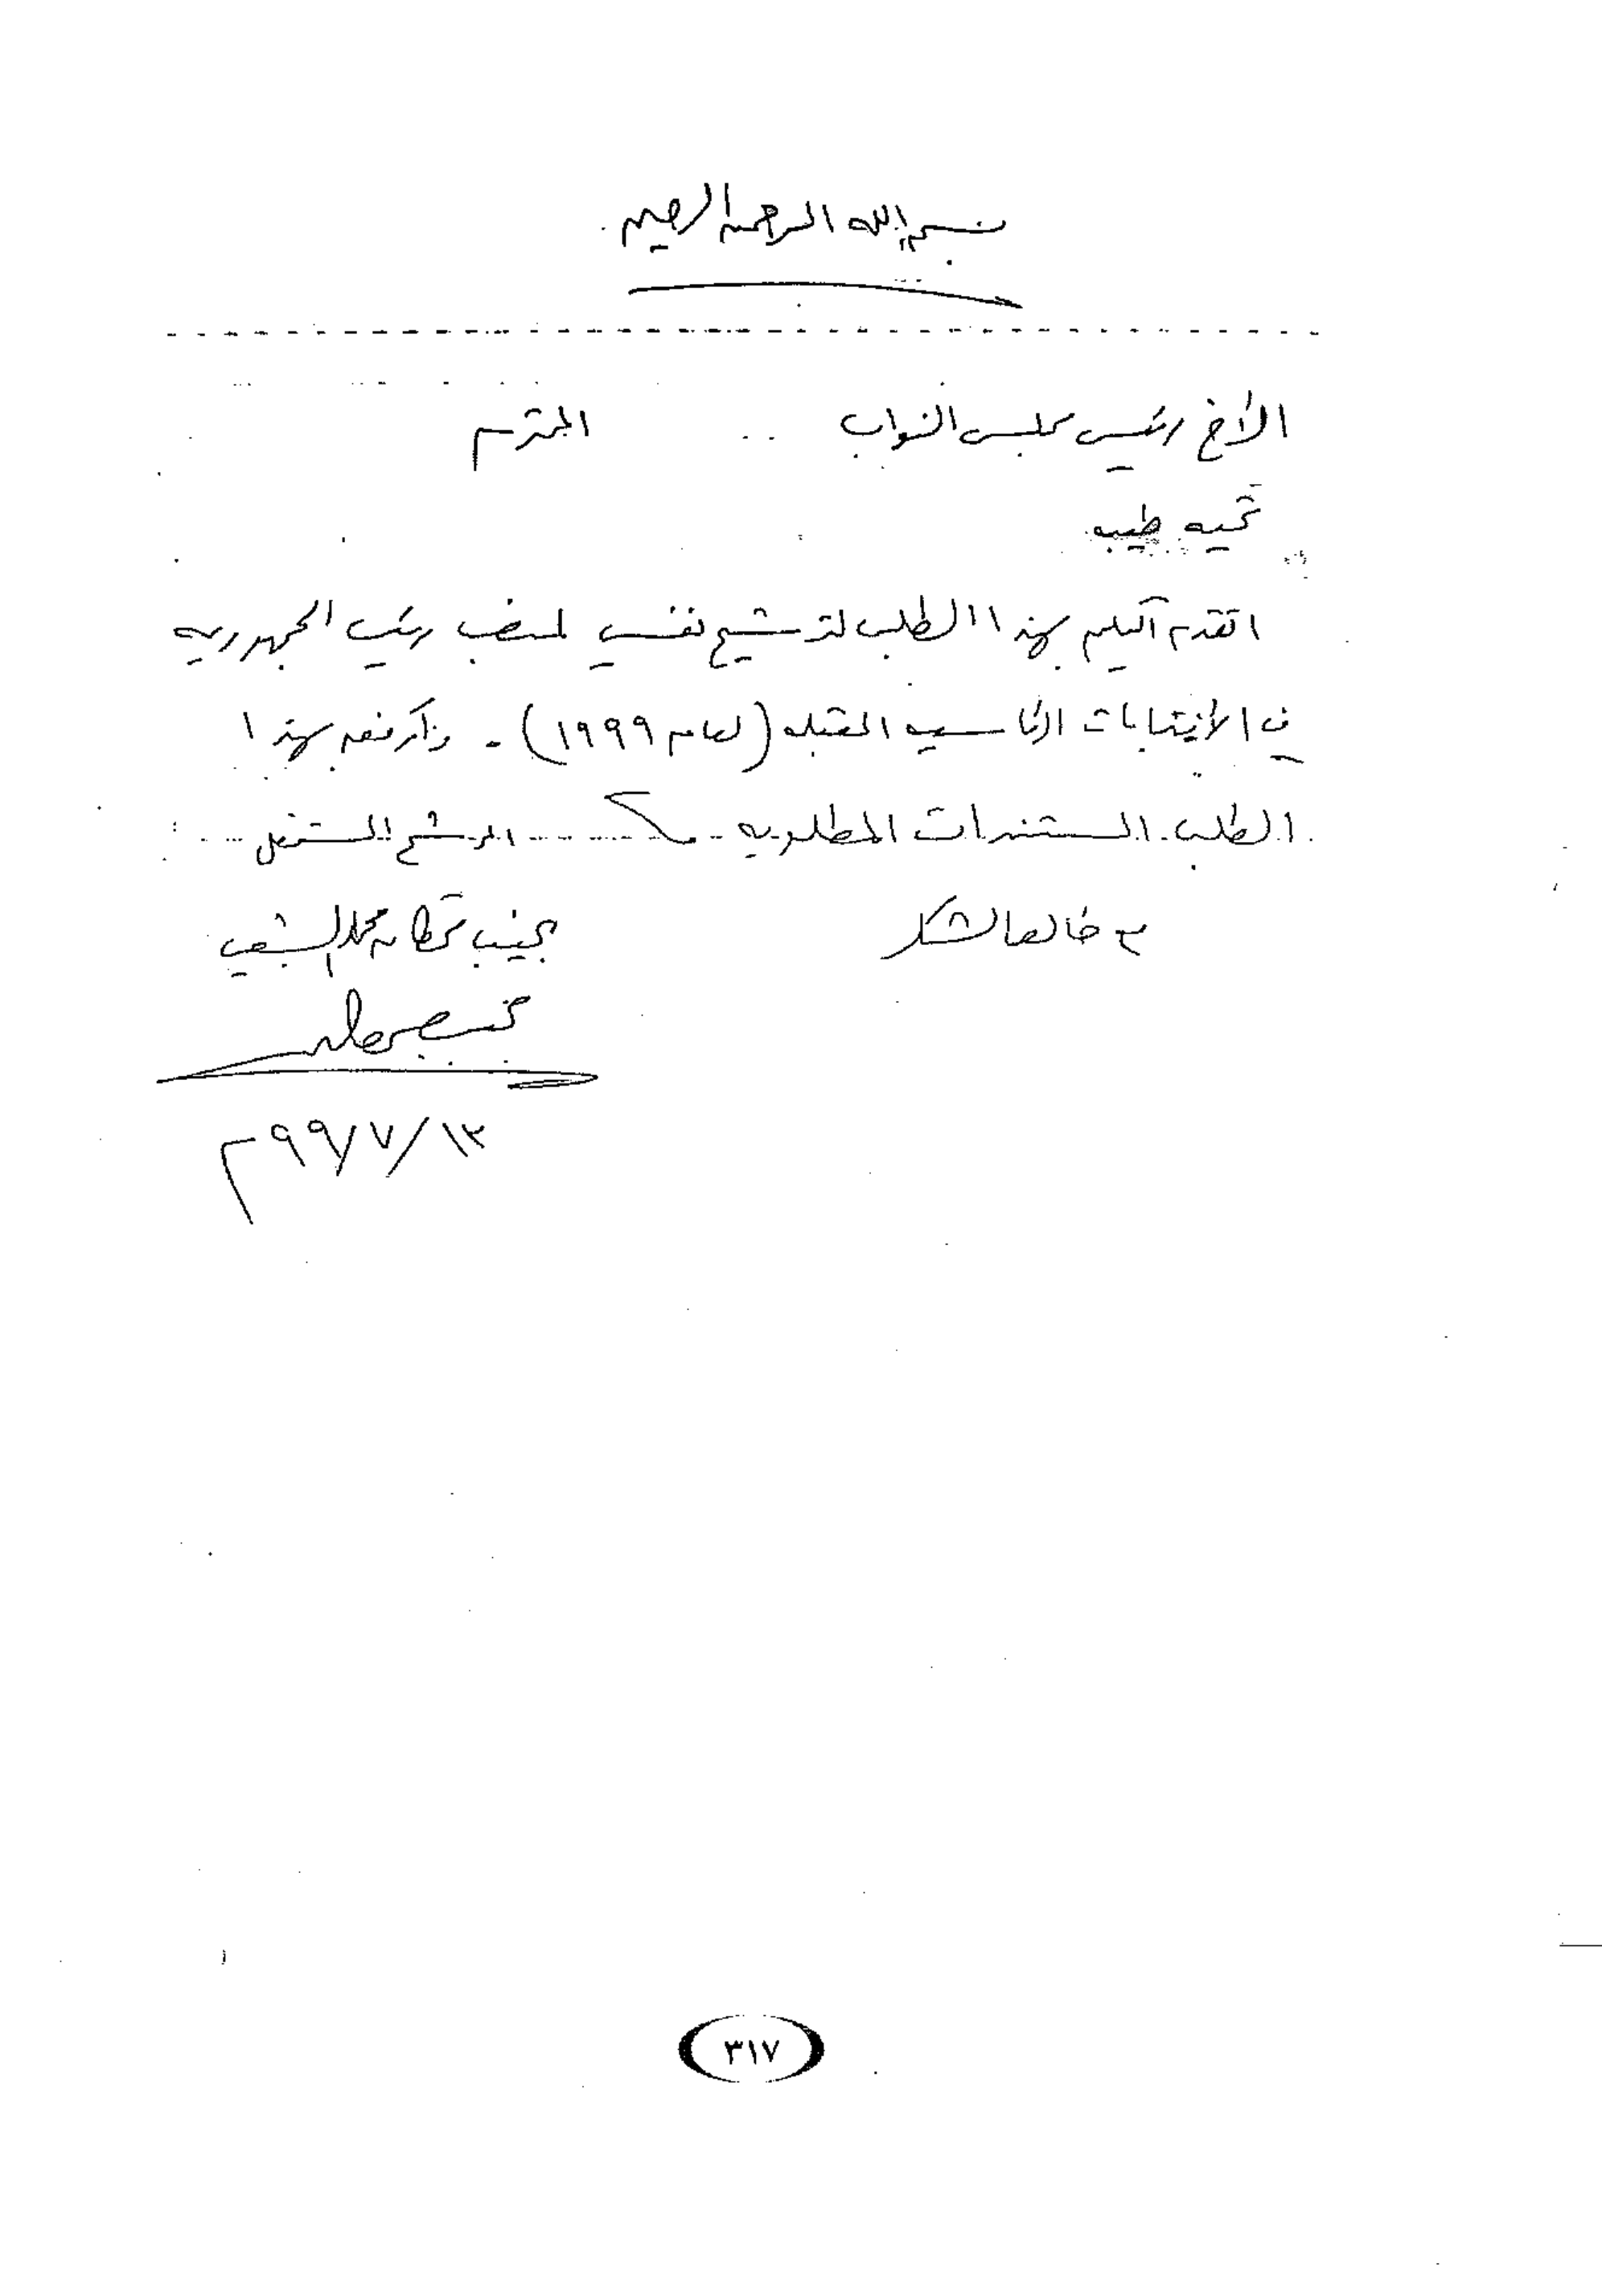 بسم الله الرحمن الرحيم
الأخ رئيس مجلس النواب .. المحترم
تحيه طيبه
اتقدم اليكم بهذا الطلب لترشيح نفسي لمنصب رئيس الجمهوريه
في الأنتخابات الرئاسيه المقبله (لعام ١٩٩٩) . وأرفعه بهذا
الطلب المستندات المطلوبه المرشح المستقل
مع خالص الشكر نجيب قحطان محمد الشعبي
نجيب قحطان
١٣/٧/٩٩م
٣١٧